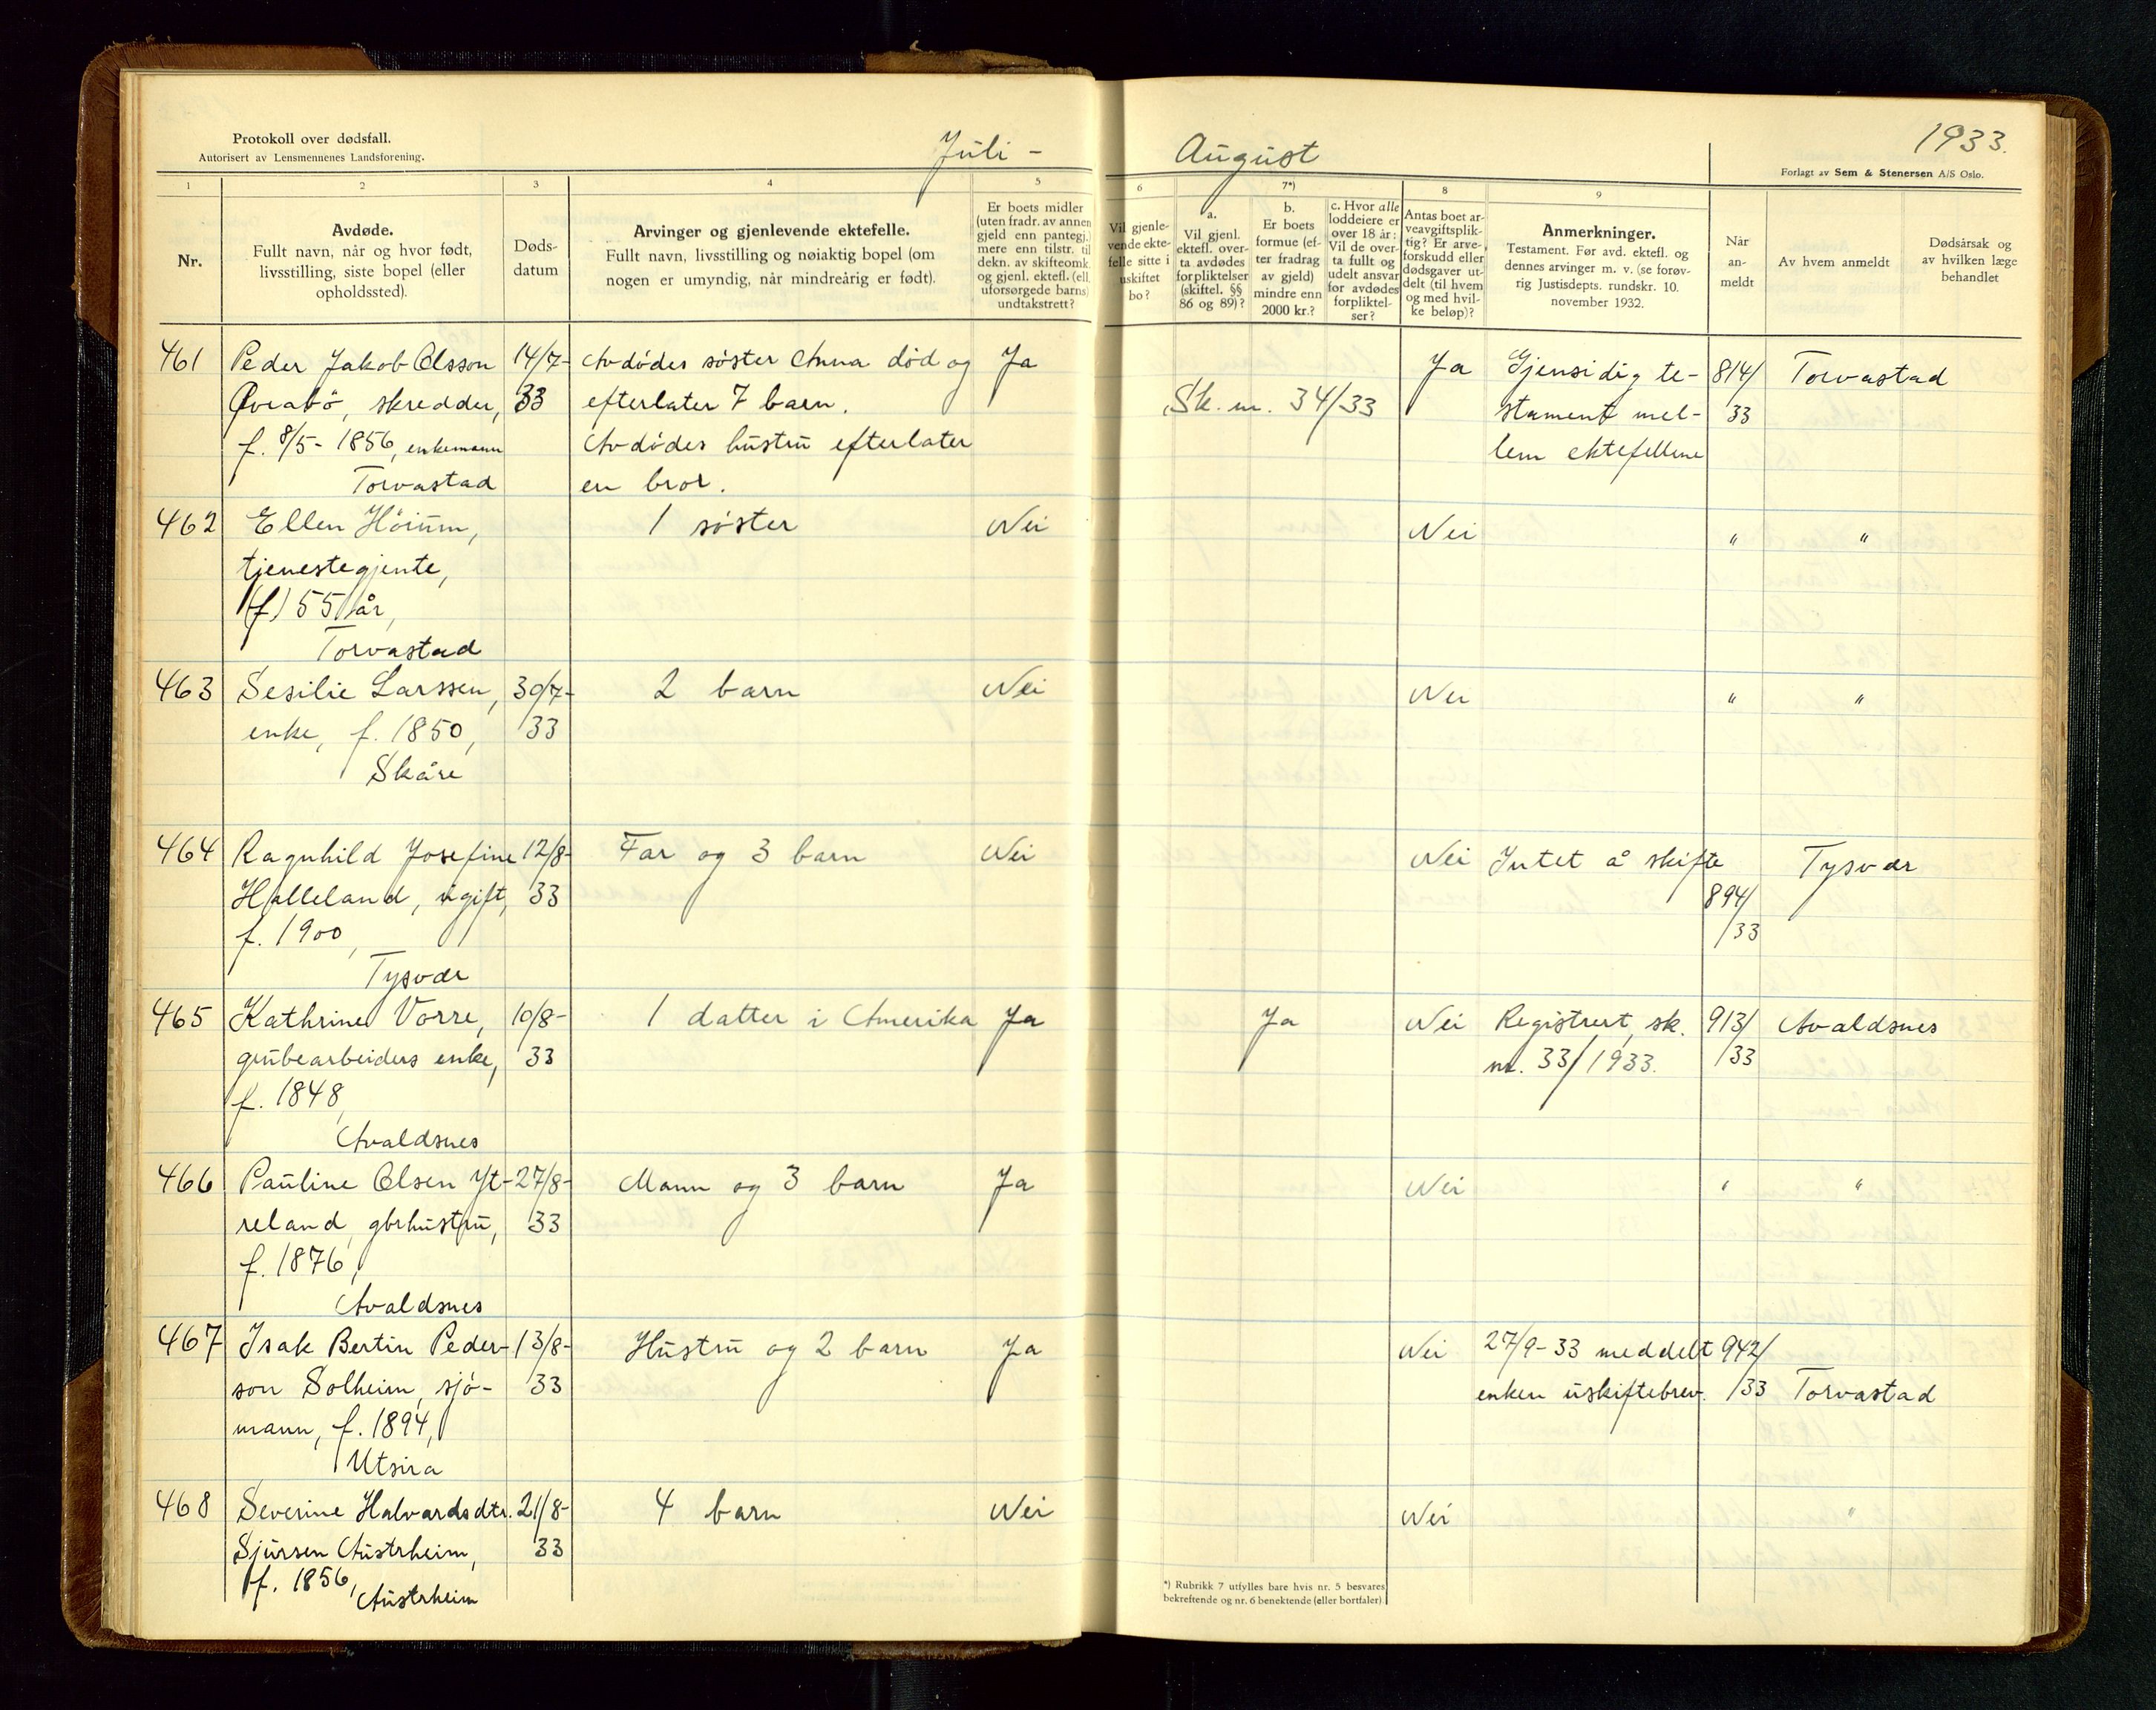 Protokoll over dødsfall.
Autorisert av Lensmennenes Landsforening.
Juli - August 1933.
Forlagt av Sem & Stenersen A/S Oslo.
1 2 3 4 5 6 7*) 8 9
Nr.
Avdøde.
Fullt navn, når og hvor født,
livsstilling, siste bopel (eller
opholdssted).
Døds-
datum
Arvinger og gjenlevende ektefelle.
Fullt navn, livsstilling og nøiaktig bopel (om
nogen er umyndig, når mindreårig er født).
Er boets midler
(uten fradr. av annen
gjeld enn pantegj.)
mere enn tilstr. til
dekn. av skifteomk.
og gjenl. ektefl. (ell.
uforsørgede barns)
undtakstrett?
Vil gjenle-
vende ekte-
felle sitte i
uskiftet
bo?
a.
Vil gjenl.
ektefl. over-
ta avdødes
forpliktelser
(skiftel. §§
86 og 89)?
b.
Er boets
formue (ef-
ter fradrag
av gjeld)
mindre enn
2000 kr.?
c. Hvor alle
loddeiere er
over 18 år:
Vil de over-
ta fullt og
udelt ansvar
for avdødes
forpliktel-
ser?
Antas boet ar-
veavgiftsplik-
tig? Er arve-
forskudd eller
dødsgaver ut-
delt (til hvem
og med hvil-
ke beløp)?
Anmerkninger.
Testament. Før avd. ektefl. og
dennes arvinger m. v. (se forøv-
rig Justisdepts. rundskr. 10.
november 1932.
Når
an-
meldt
Av hvem anmeldt
Dødsårsak og
av hvilken læge
behandlet
461 Peder Jakob Olsson 14/7- Avdødes søster Anna død og Ja Ja Gjensidig te- 814/ Torvastad
Øvrabö, skredder, 33 efterlater 7 barn. Sk. nr. 34/33 stament mel- 33
f. 8/5- 1856, enkemann Avdødes hustru efterlater lem ektefellene
Torvastad en bror.
462 Ellen Höium, 1 søster Nei Nei " "
tjenestegjente,
(f) 55 år,
Torvastad
463 Sesilie Larssen, 30/7- 2 barn Nei Nei " "
enke, f. 1850, 33
Skåre
464 Ragnhild Josefine 12/8- Far og 3 barn Nei Nei Intet å skifte Tysvær
Halleland, ugift, 33 894/
f. 1900, /33
Tysvær
465 Kathrine Vorre, 10/8- 1 datter i Amerika Ja Ja Nei Registrert, sk. 913/ Avaldsnes
grubearbeiders enke, 33 nr. 33/1933. /33
f. 1848,
Avaldsnes
466 Pauline Olsen Yt- 27/8- Mann og 3 barn Ja Nei " "
reland, gbrhustru, 33
f. 1876,
Avaldsnes
467 Isak Bertin Peder- 13/8- Hustru og 2 barn Ja Nei 27/9-33 meddelt 942/
son Solheim, sjø- 33 enken uskiftebrev. /33 Torvastad
mann, f. 1894,
Utsira
468 Severine Halvardsdtr. 21/8- 4 barn Nei Nei "
Sjursen Austrheim, 33
f. 1856,
Austrheim
*) Rubrikk 7 utfylles bare hvis nr. 5 besvares
bekreftende og nr. 6 benektende (eller bortfaler).